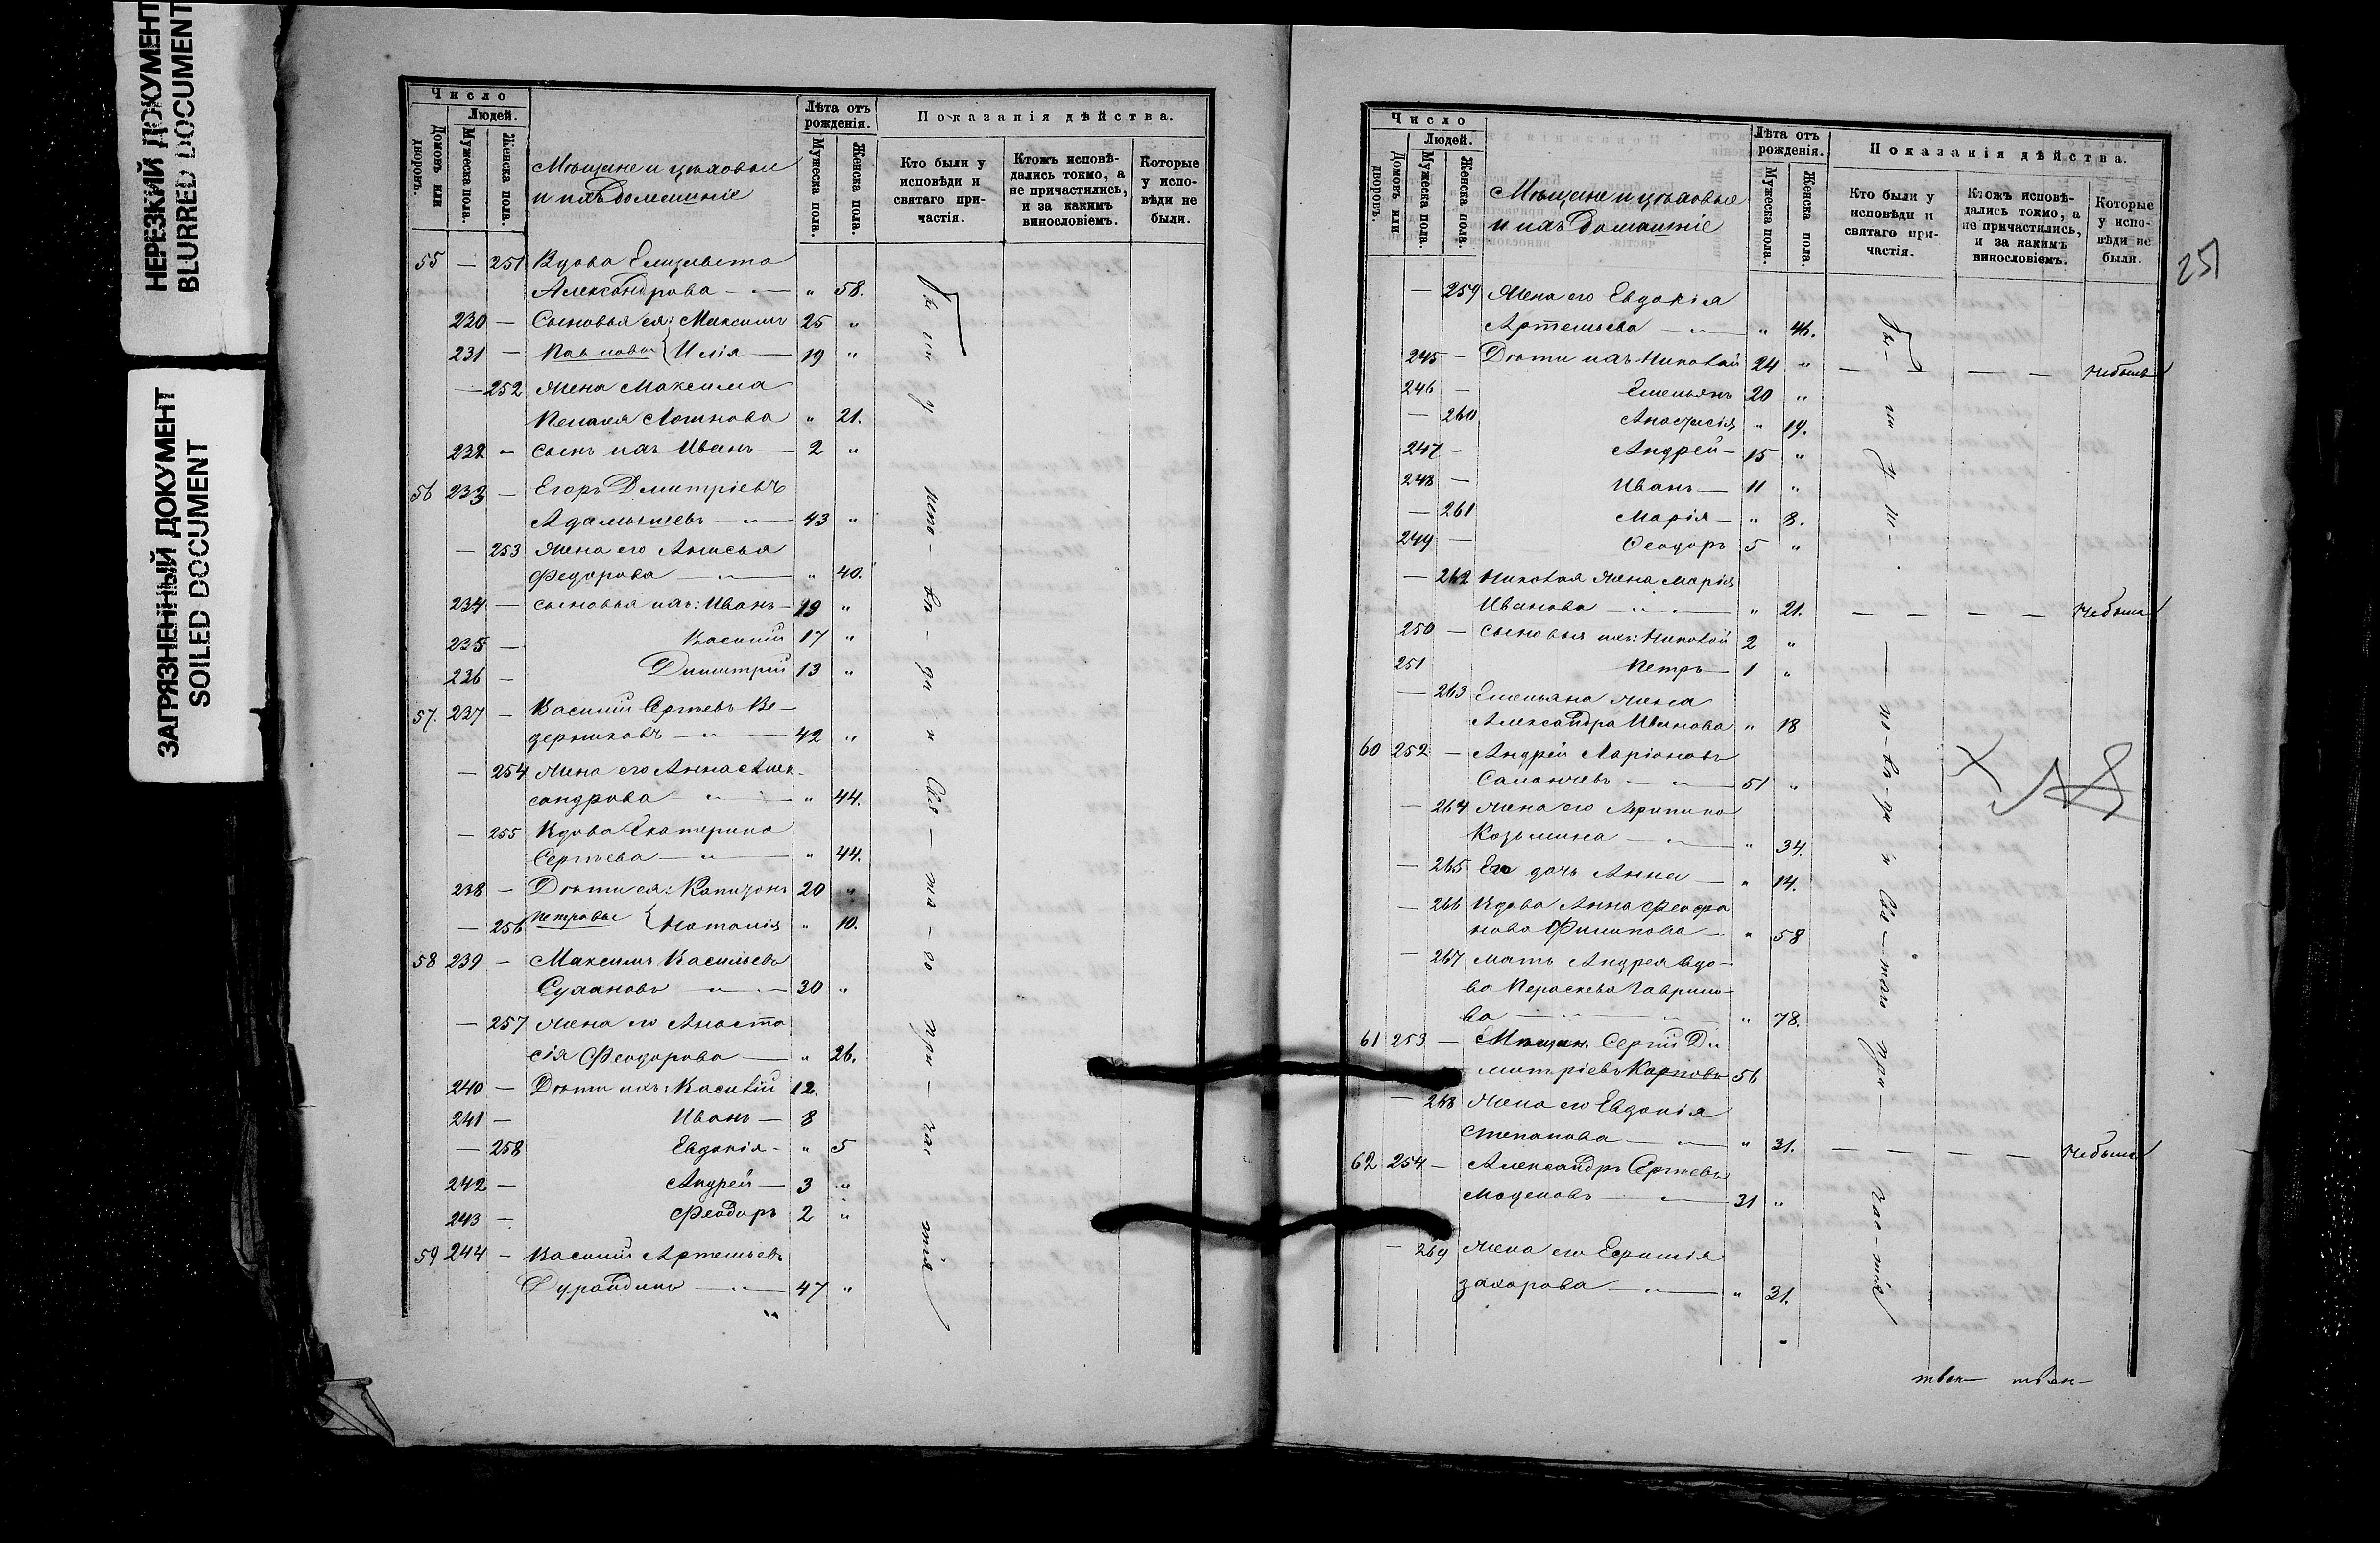 НЕРЕЗКИЙ ДОКУМЕНТ
BLURRED DOCUMENT
ЗАГРЯЗНЕННЫЙ ДОКУМЕНТ
SOILED DOCUMENT
Число
Людей.
Домовъ или дворовъ.
Мужеска пола.
Женска пола.
Мѣщане и цѣховые
и ихъ домашніе
Лѣта отъ рожденія.
Мужеска пола.
Женска пола.
Показанія дѣйства.
Кто были у исповѣди и святаго причастія.
Ктожъ исповѣдались токмо, а не причастились, и за какимъ винословіемъ.
Которые у исповѣди не были.
55 — 251 Вдова Елизавета
Александрова — " 58.
230 — Сыновья ея: Максимъ 25 "
231 — Павловы { Илія — 19 "
— 252 Жена Максима
Логинова " 21.
232 — Сынъ ихъ Иванъ — 2 "
56 233 — Егоръ Дмитріевъ
43 "
— 253 Жена его Анисья
Федорова — " 40.
234 — Сыновья ихъ: Иванъ — 19 "
235 — Василій 17 "
236 — Димитрій 13 "
57. 237 — Василій Сергѣевъ Ве-
дерниковъ — 42 "
— 254 Жена его Анна Алек-
сандрова " 44.
— 255 Вдова Екатерина
Сергѣева — " 44.
238 — Дѣти ея: Капитонъ 20 "
— 256 Петровы { Наталія " 10.
58 239 — Максимъ Васильевъ
30 "
— 257 Жена его Анаста
сія Феодорова — " 26.
240 — Дѣти ихъ: Василій 12.
241 — Иванъ — 8
— 258 Евдокія - " 5
242 — Андрей — 3 "
243 — Феодоръ 2 "
59 244 — Василій Артемьевъ
Дурандинъ — 47 "
Число
Людей.
Домовъ или дворовъ.
Мужеска пола.
Женска пола.
Мѣщане и цѣховые
и ихъ домашніе
Лѣта отъ рожденія.
Мужеска пола.
Женска пола.
Показанія дѣйства.
Кто были у исповѣди и святаго причастія.
Ктожъ исповѣдались токмо, а не причастились, и за какимъ винословіемъ.
Которые у исповѣди не были.
251
— 259 Жена его Евдокія
Артемьева — " 46.
245 — Дѣти ихъ Николай 24 " — — — небылъ
246 — Емельянъ 20 "
— 260 Анастасія " 19.
247 — Андрей — 15 "
248 — Иванъ — 11 "
— 261 Марія — " 8.
249 — Ѳеодоръ 5 "
— 262 Николая жена Марія
Иванова — " 21. — — — — небыла
250 — Сыновья ихъ: Николай 2 "
251 Петръ — 1 "
— 263 Емельяна жена
Александра Иванова " 18
60 252 — Андрей Ларіоновъ
51 "
— 264 Жена его Агрипина
Козьмина — " 34.
— 265 Его дочь Анна — " 14.
— 266 Вдова Анна Феофа
нова Филипова — " 58
— 267 Мать Андрея вдо-
ва Пераскева Гаврило-
ва — " 78.
61 253 — Мѣщан. Сергій Ди
митріевъ Карповъ 56
— 268 Жена его Евдокія
Степанова — " 31. — — — — небыла
62 254 — Александръ Сергѣевъ
31 "
— 269 Жена его Ефимія
Захарова — " 31.